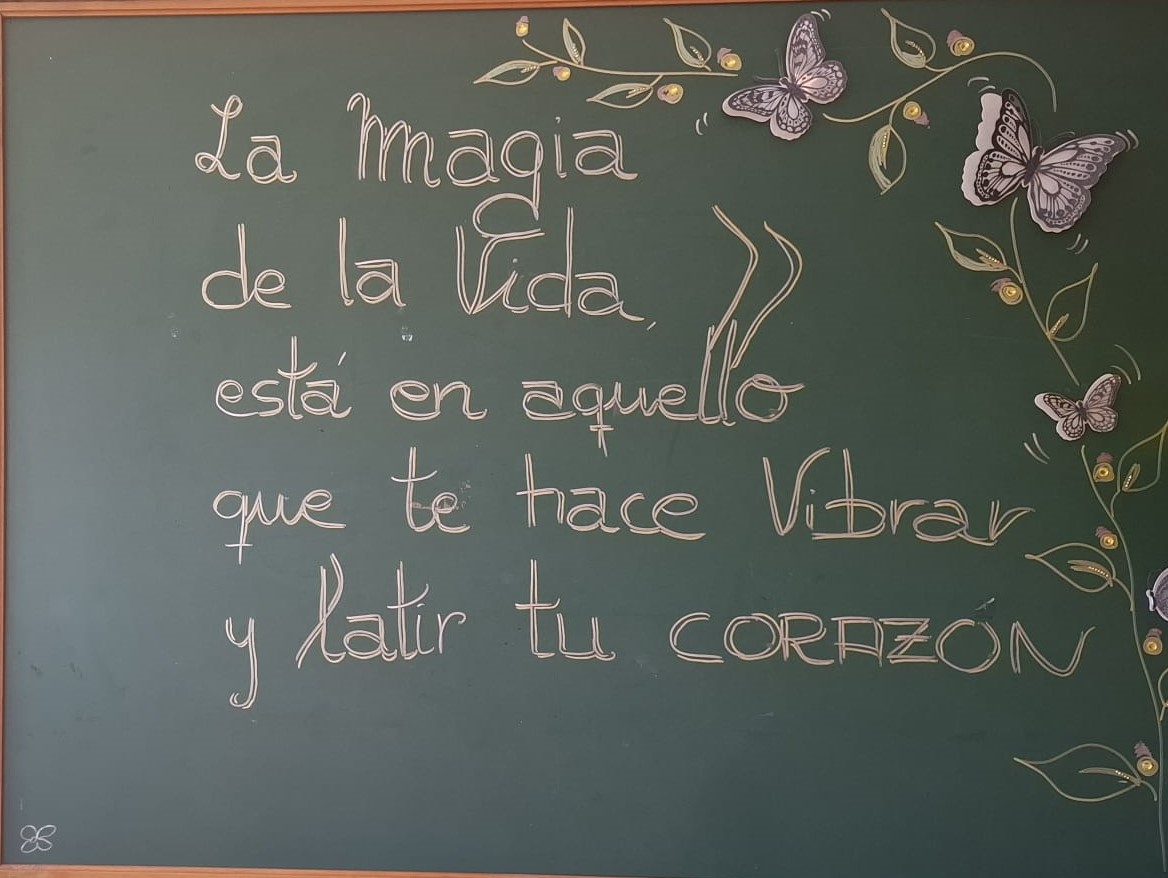 La magia
de la Vida,
está en aquello
que te hace Vibrar
y latir tu CORAZÓN